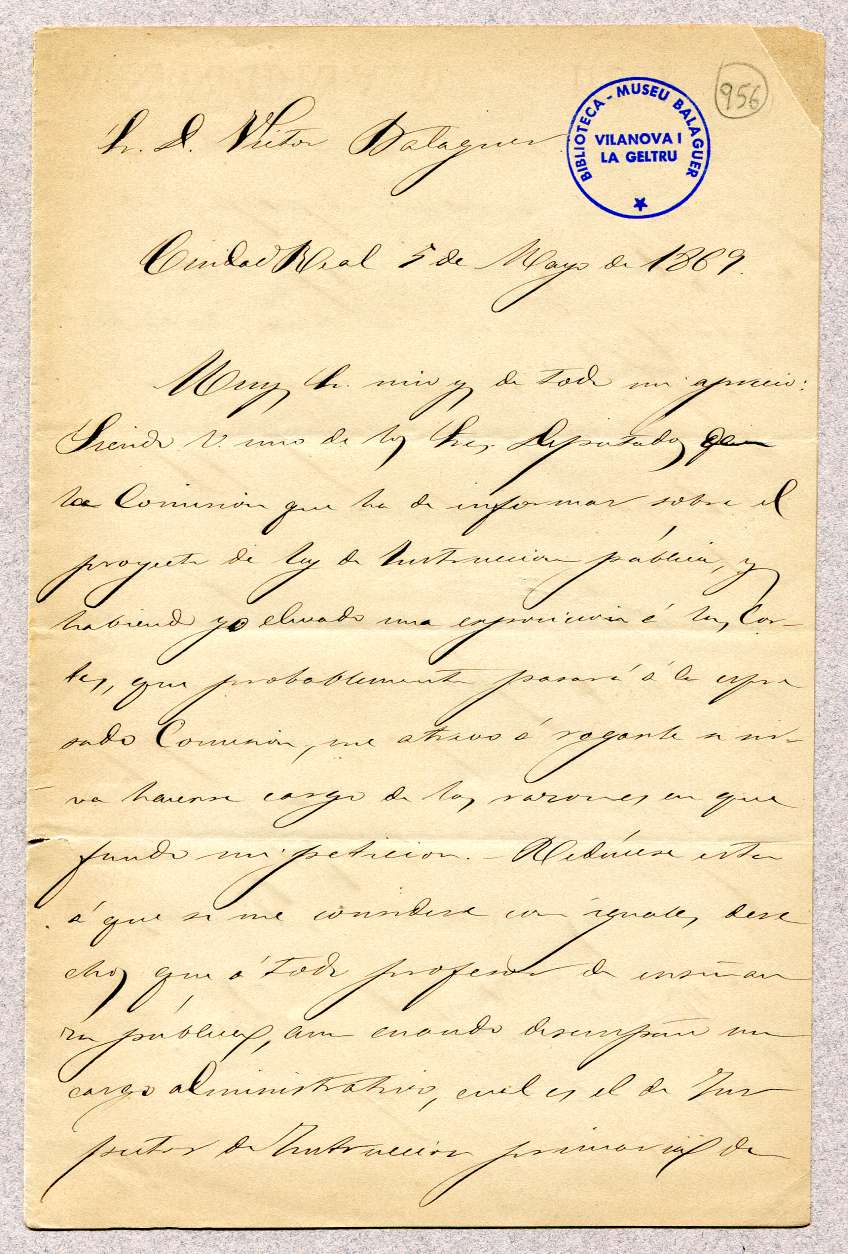 956
BIBLIOTECA - MUSEU BALAGUER
VILANOVA I
LA GELTRU
Sr. D. Victor Balaguer
Ciudad Real 5 de Mayo de 1869.
Muy Sr. mio y de todo mi aprecio:
Siendo V. uno de los Sres. Diputados de
la Comision que ha de informar sobre el
proyecto de ley de Instruccion pública, y
habiendo yo elevado una exposicion á las Cor-
tes, que probablemente pasará á la espre
sada Comision, me atrevo á rogarle se sir-
va hacerse cargo de las razones en que
fundo mi peticion. - Redúcese esta
á que se me considere con iguales dere
chos que á todo profesor de enseñan
za pública, aun cuando desempeñe un
cargo administrativo, cual es el de Ins
pector de Instruccion primaria de